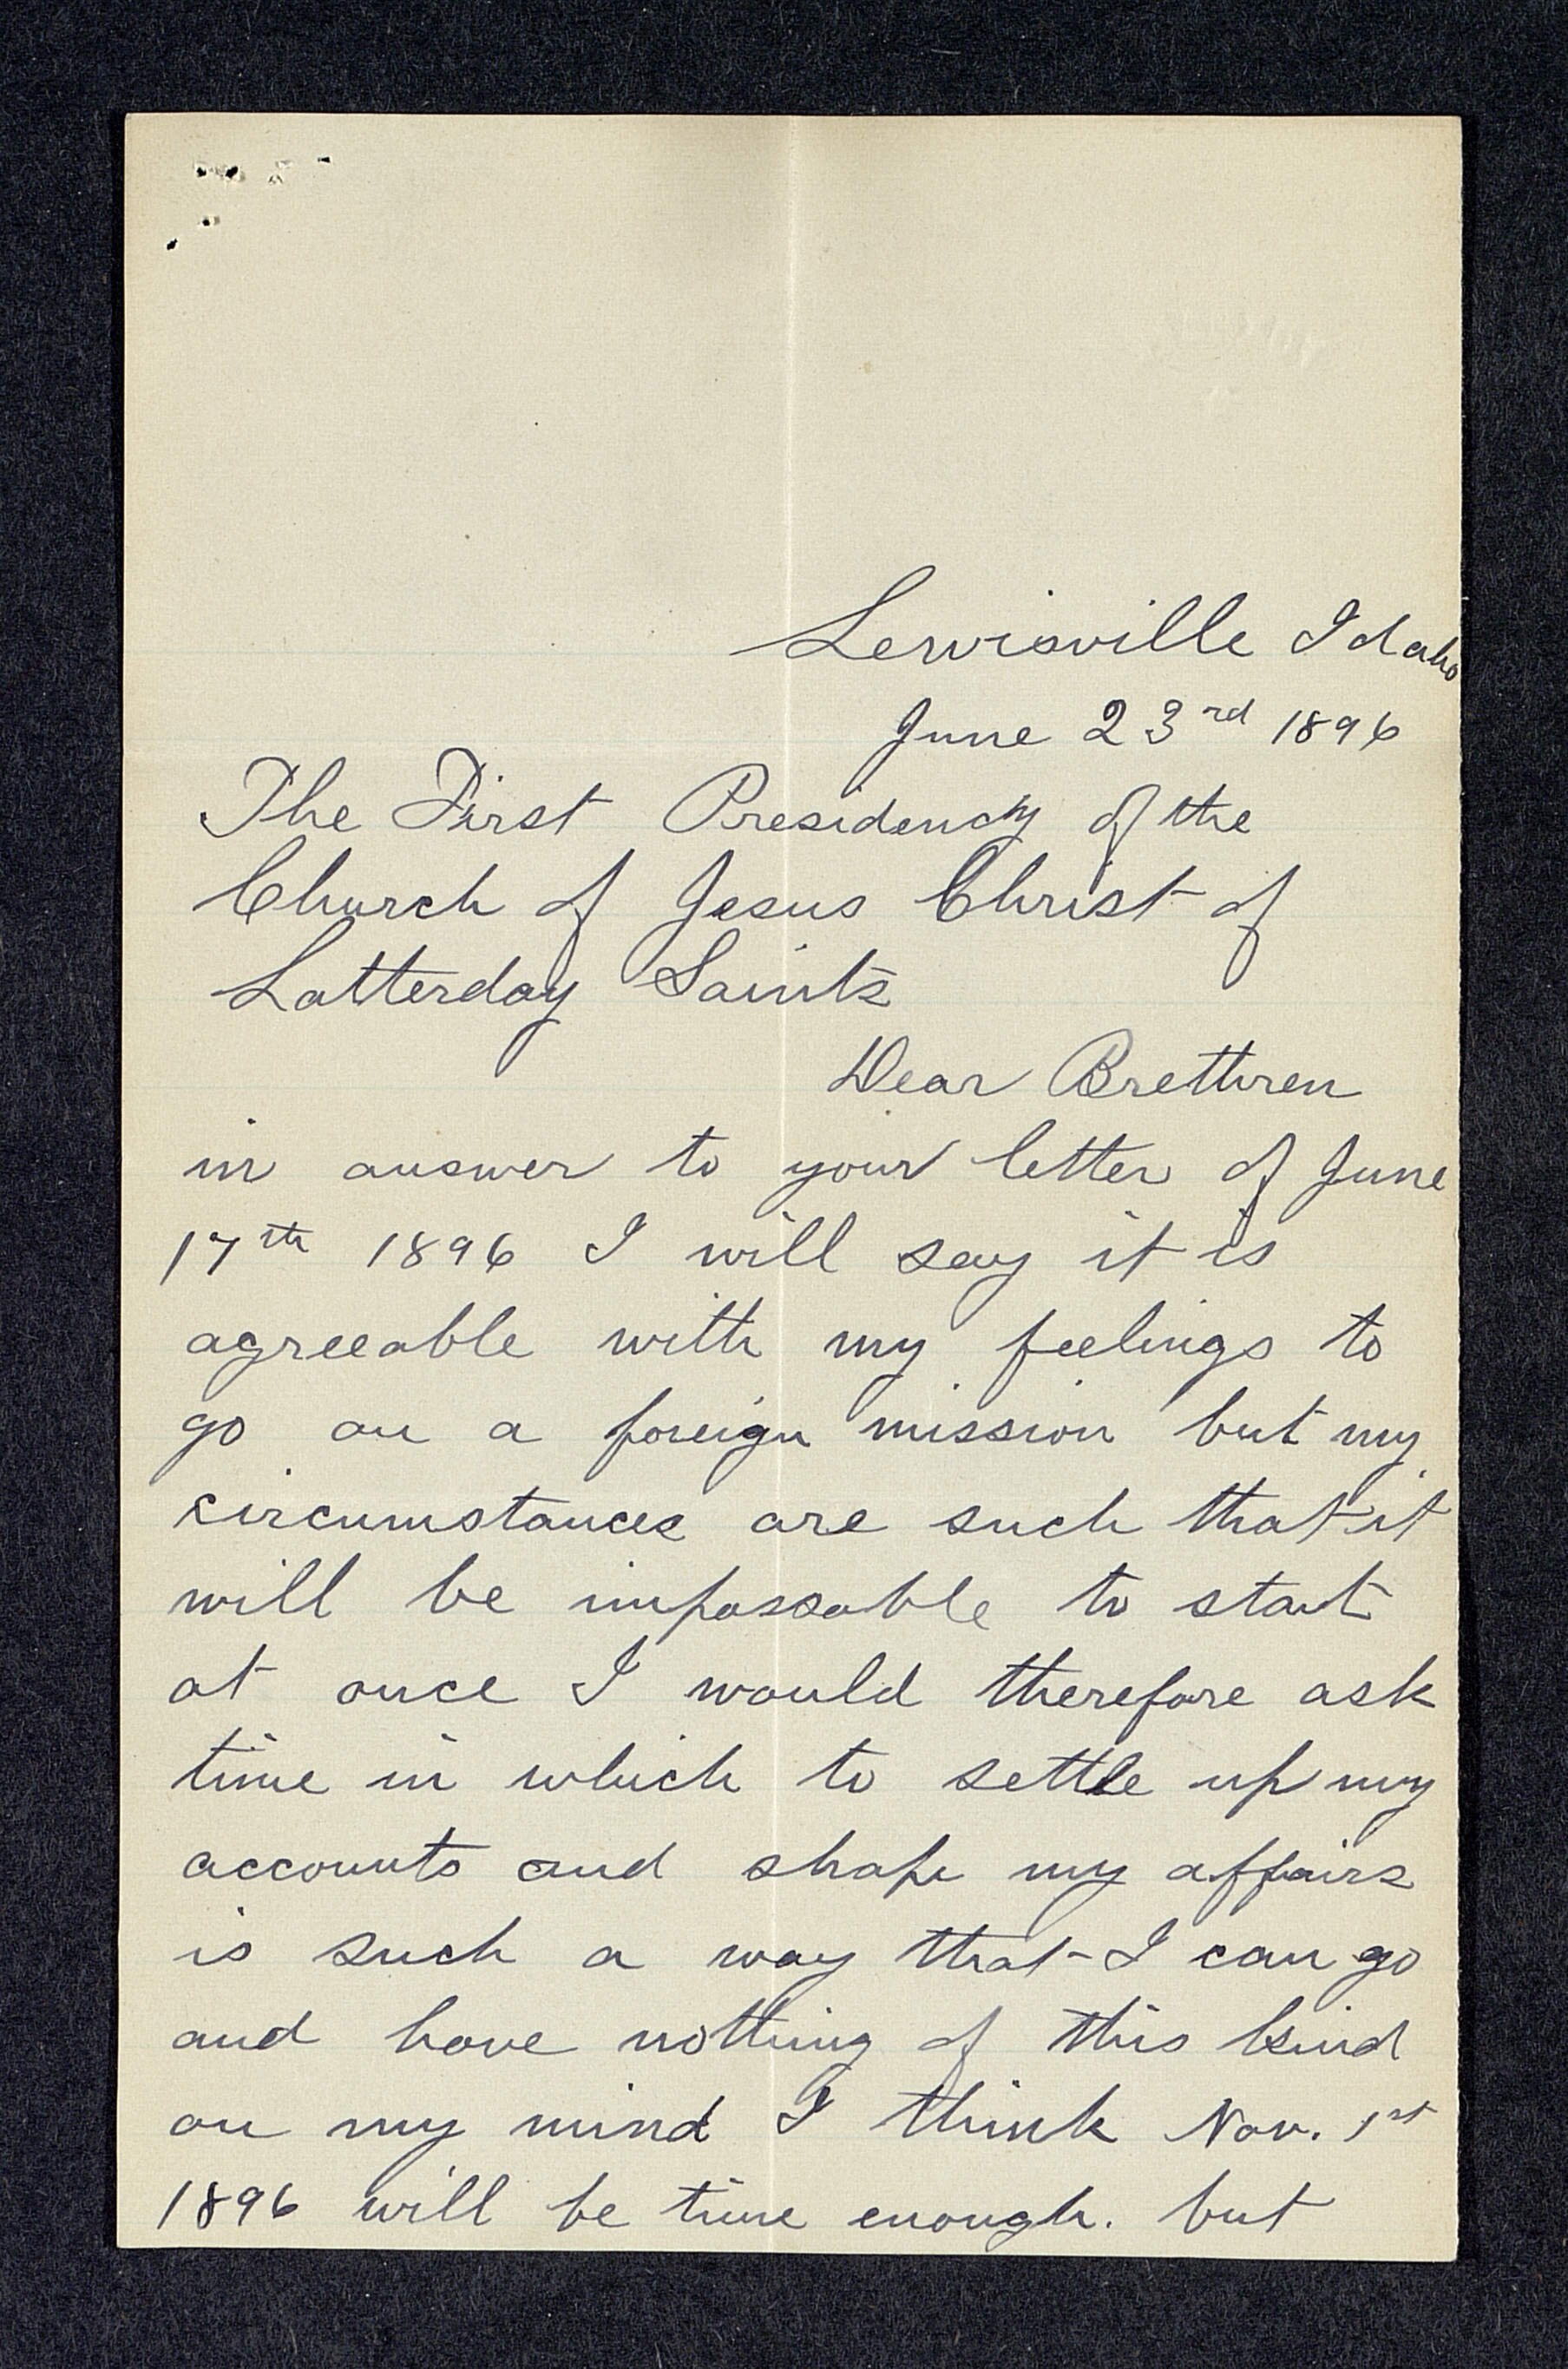 Lewisville Idaho
June 23rd 1896
The First Presidency of the
Church of Jesus Christ of
Latterday Saints
Dear Brethren
in answer to your letter of June
17th 1896 I will say it is
agreeable with my feelings to
go on a foreign mission but my
circumstances are such that it
will be impossable to start
at once I would therefore ask
time in which to settle up my
accounts and shape my affairs
is such a way that I can go
and have nothing of this kind
on my mind I think Nov. 1st
1896 will be time enough. but